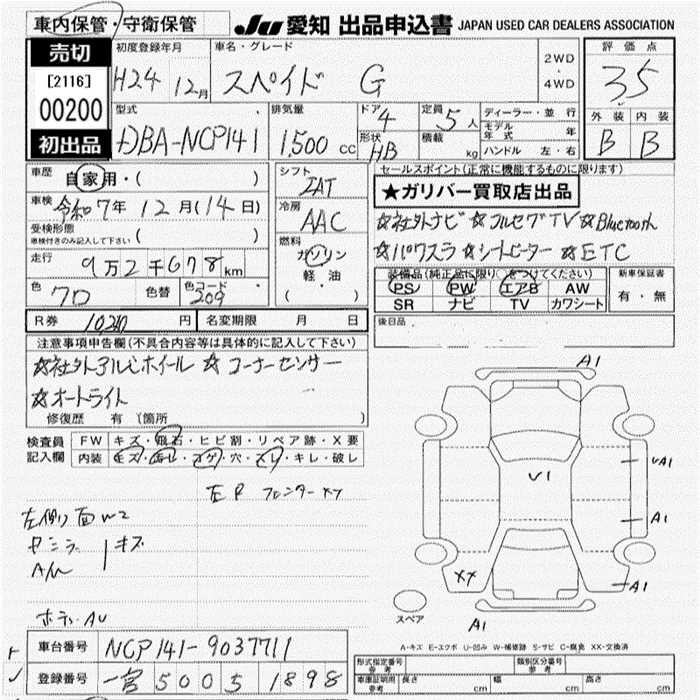 車内保管・守衛保管
JU 愛知 出品申込書 JAPAN USED CAR DEALERS ASSOCIATION
売切
[2116]
00200
初出品
初度登録年月
H24 12月
車名・グレード
スペイド G
2WD
・
4WD
評価点
3.5
型式
DBA-NCP141
排気量
1,500 cc
ドア
4
形状
HB
定員
5人
積載
kg
ディーラー・並行
モデル年式 年
ハンドル 左・右
外装 内装
B B
車歴
自家用・( )
車検
令和7年12月(14日)
受検形態
車検付きのみ記入して下さい ( )
走行
9万2千678km
色
クロ
色替
色コード
209
シフト
IAT
冷房
AAC
燃料
ガソリン
軽油
( )
セールスポイント(正常に機能するものに限ります)
★ガリバー買取店出品
☆社外ナビ ☆フルセグTV ☆Bluetooth
☆パワスラ ☆シートヒーター ☆ETC
装備品(純正品に限り○をつけてください)
PS PW エアB AW
SR ナビ TV カワシート
新車保証書
有・無
R券 10,240円 名変期限 月 日
後日品
注意事項申告欄(不具合内容等は具体的に記入して下さい)
☆社外アルミホイール ☆コーナーセンサー
☆オートライト
修復歴 有 〔箇所 〕
検査員
記入欄
FW キズ・飛石・ヒビ割・リペア跡・X要
内装 キズ・汚レ・コゲ・穴・スレ・キレ・破レ
左側面W2
キズ
ボディAU
A1
V1
UA1
A1
XX
A1
A1
スペア
A-キズ E-エクボ U-凹み W-補修跡 S-サビ C-腐食 XX-交換済
車台番号 NCP141-9037711
登録番号 一宮 500 5 1898
形式指定番号
参考
類別区分番号
参考
車庫証明用
参考
長さ cm 幅 cm 高さ cm